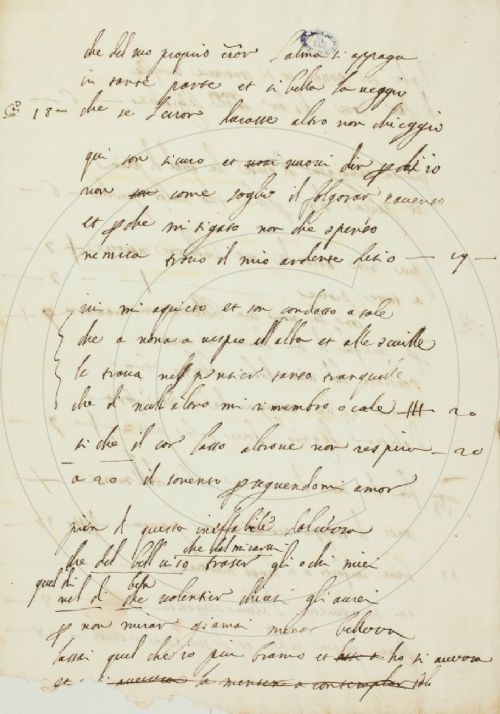 che del suo proprio error l'alma s'appaga
in tante parte et si bella la veggio
18 — che se l'error durasse altro non chieggio
qui son sicuro et vovi dir perch'io
non come soglio il folgorar pavento
et perche mitigato non che spento
ne mica trovo il mio ardente desio — 19 —
ivi mi aqueto et son condotto a tale
che a nona a vespro all'alba et alle squille
le trova nell pensier tanto tranquille
che di null'altro mi rimembro o cale — 20
si che il cor lasso altrove non respira — 20
a 20 il sovente perseguendomi amor
pien d questa ineffabile dolcezza
che dal mirarvi
che del bell viso trasser gli ochi miei
quel di
nel di che volentier chiusi gli aurei
per non mirar giamai minor bellezza
lassai quel che io piu bramo et ho si avezza
et si avezza la mente a contemplar